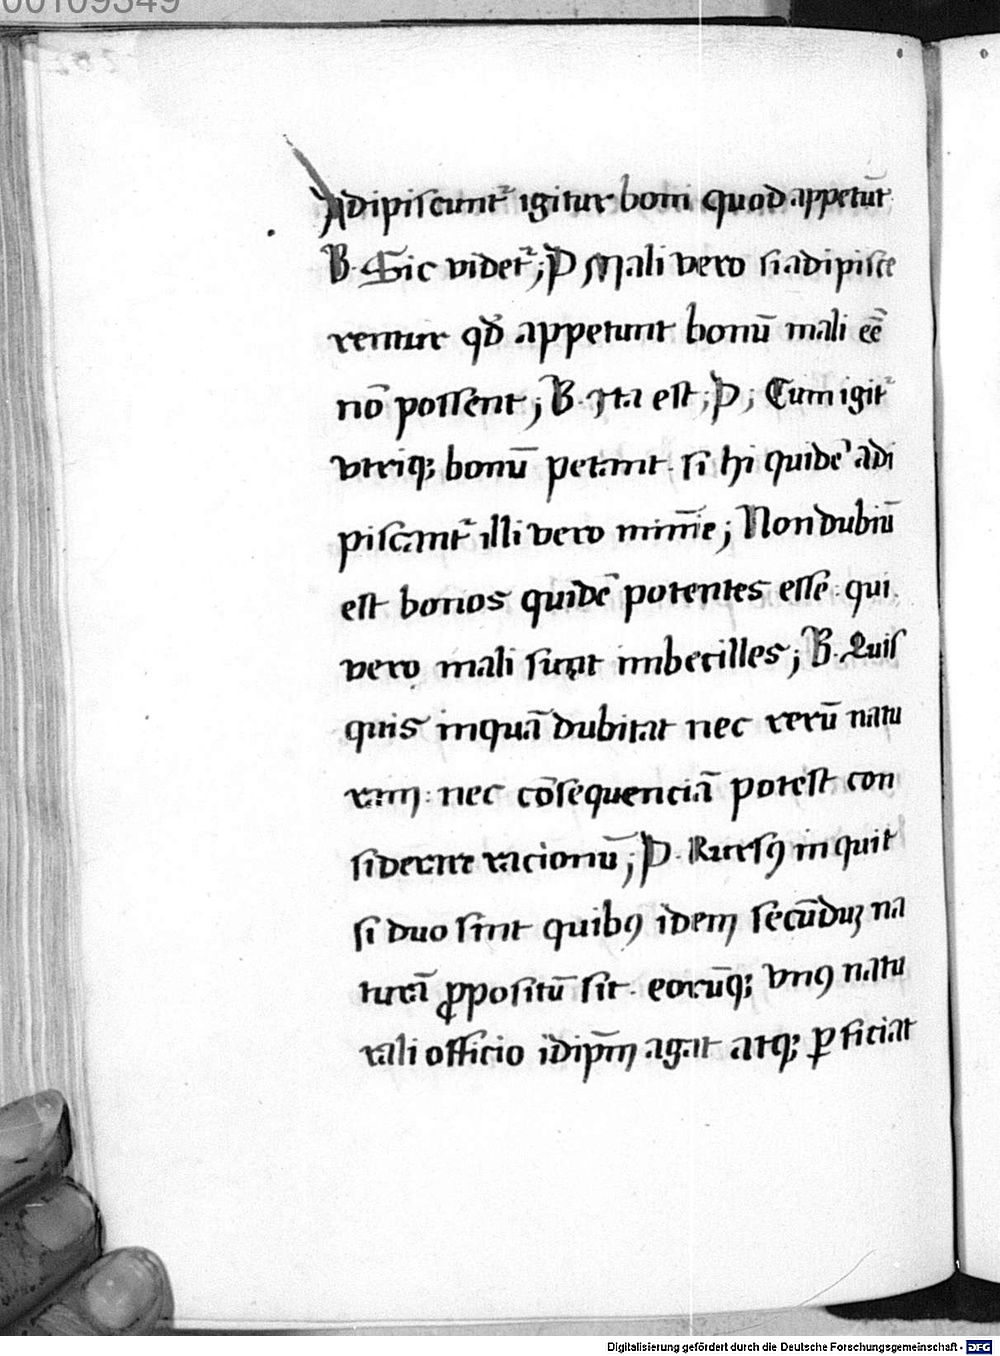 00109349
Adipiscunt᷑ igitur boni quod appetūt
B. Sic videt᷑; P Mali vero si adipisce
rentur qđ appetunt bonū mali eē
nō possent; B. Ita est; P; Cum igit᷑
vtriq; bonū petant. si hi quidē adi
piscant᷑ illi vero mīme; Non dubiū
est bonos quidē potentes esse. qui
vero mali sunt imbecilles; B. Quis
quis inquā dubitat nec rerū natu
ram: nec cōsequenciā potest con
siderare racionū; P. Rursꝯ inquit
si duo sint quibꝯ idem secūduꝫ na
turā ꝓpositū sit. eorūq; vnꝯ natu
rali officio idip̄m agat atq; ꝑficiat
Digitalisierung gefördert durch die Deutsche Forschungsgemeinschaft - DFG